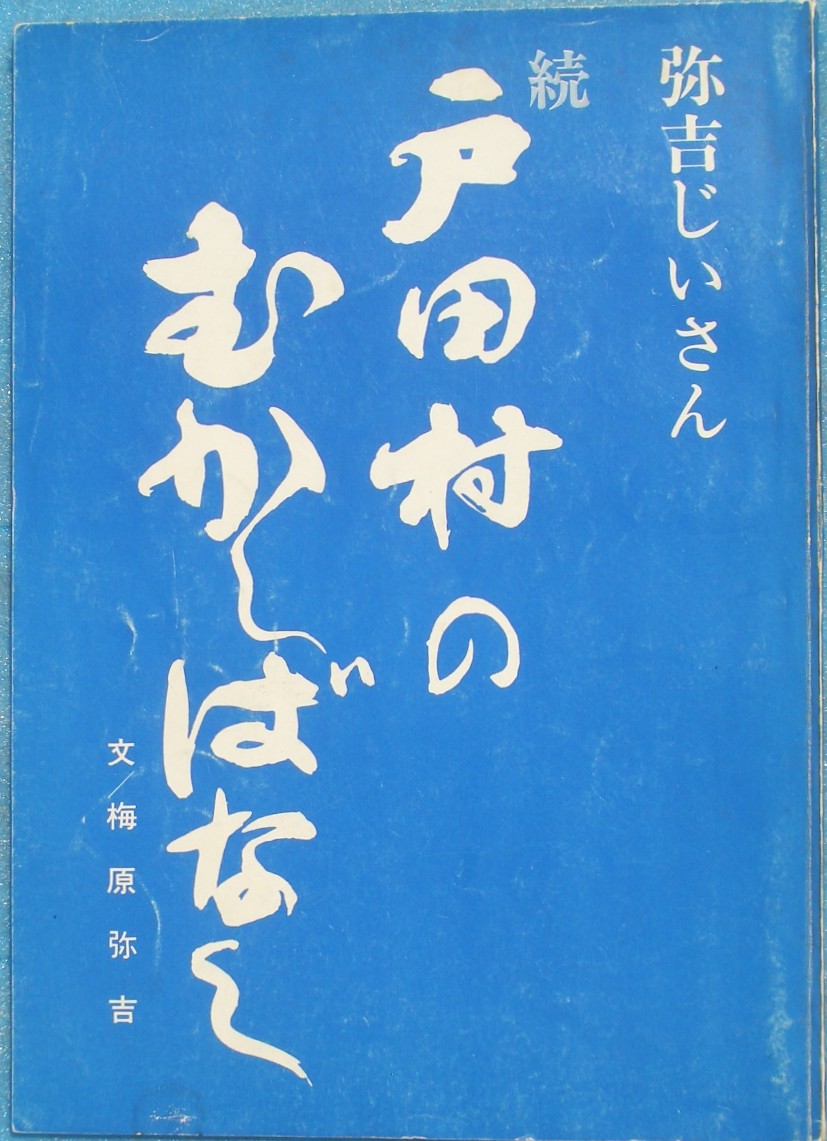 弥吉じいさん
続
戸田村の
むかしばなし
文 梅原弥吉